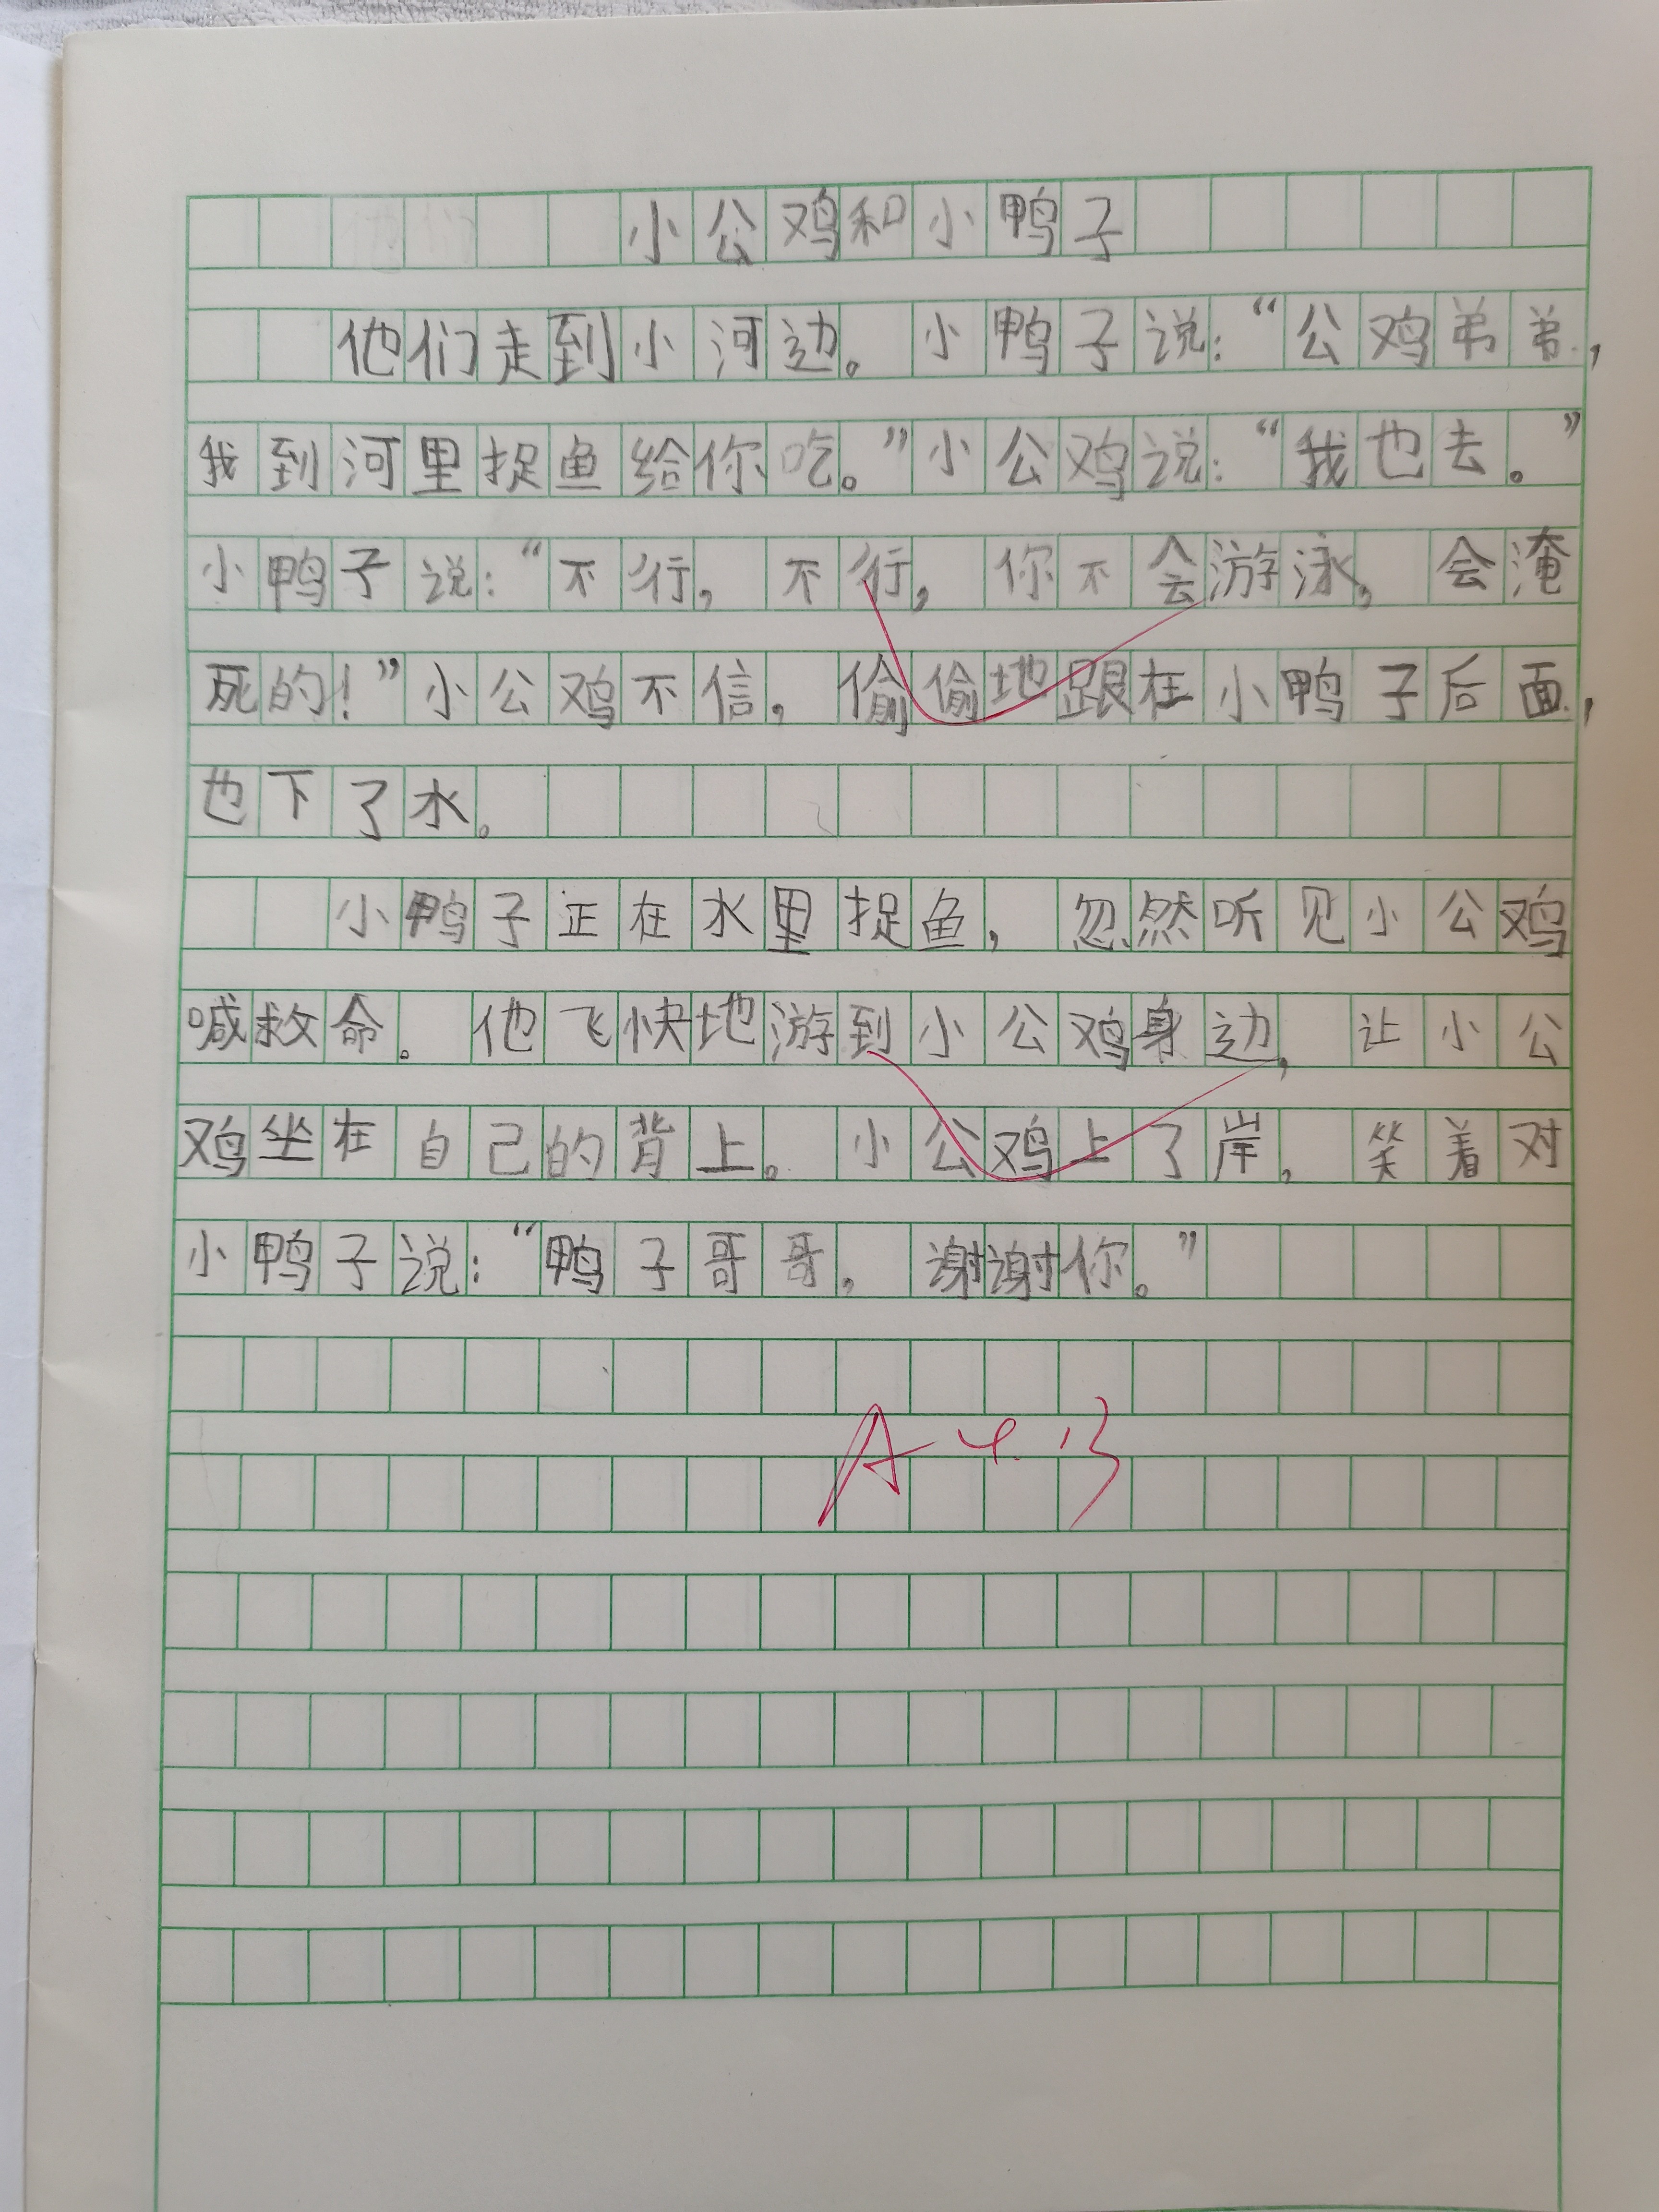 小公鸡和小鸭子
他们走到小河边。小鸭子说：“公鸡弟弟，
我到河里捉鱼给你吃。”小公鸡说：“我也去。”
小鸭子说：“不行，不行，你不会游泳，会淹
死的！”小公鸡不信，偷偷地跟在小鸭子后面，
也下了水。
小鸭子正在水里捉鱼，忽然听见小公鸡
喊救命。他飞快地游到小公鸡身边，让小公
鸡坐在自己的背上。小公鸡上了岸，笑着对
小鸭子说：“鸭子哥哥，谢谢你。”
A 4.13